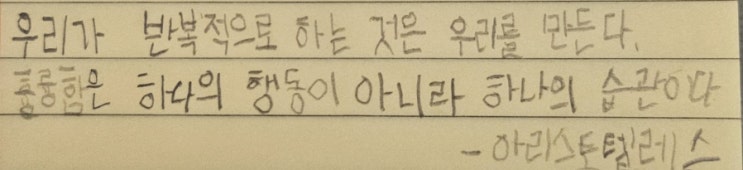 우리가 반복적으로 하는 것은 우리를 만든다.
훌륭함은 하나의 행동이 아니라 하나의 습관이다
- 아리스토텔레스